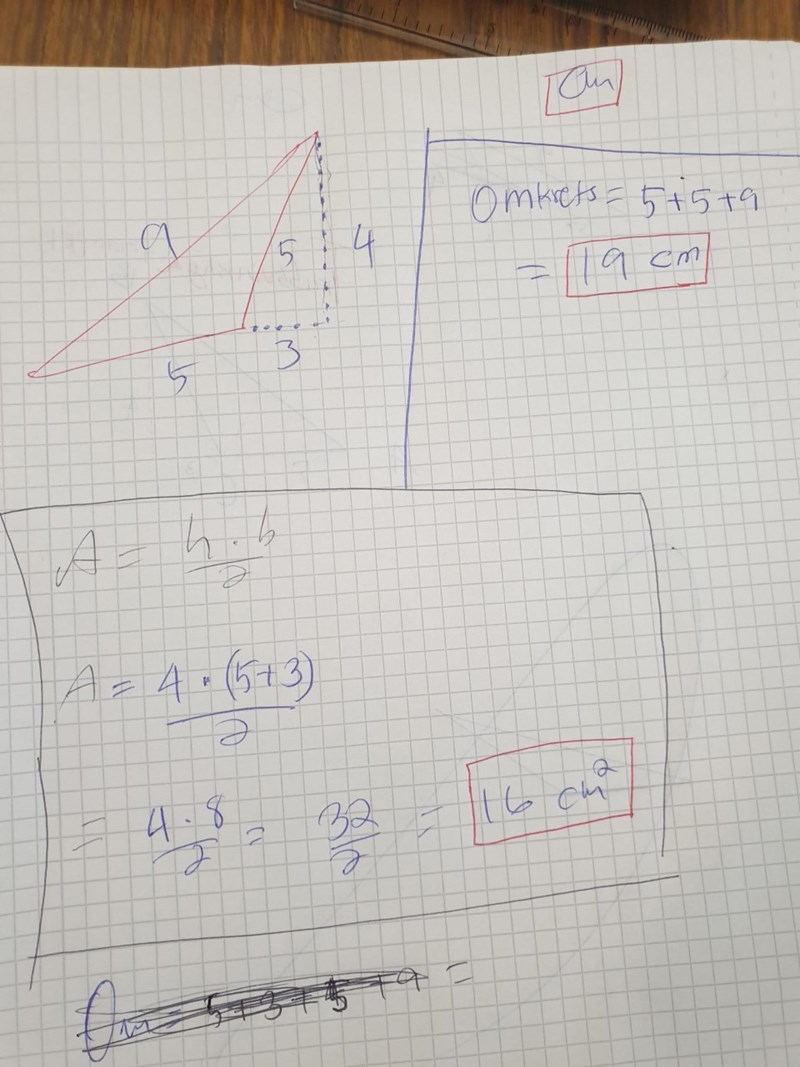 Om
9
5
4
5
3
Omkrets = 5+5+9
= 19 cm
A = h · b / 2
A = 4 · (5+3) / 2
= 4 · 8 / 2 = 32 / 2 = 16 cm²
Om = 5+3+5+9 =